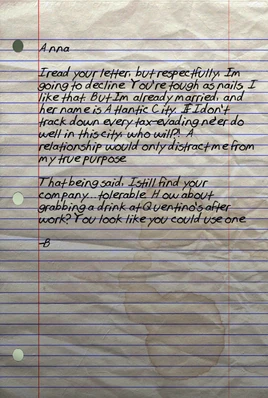 Anna
I read your letter, but respectfully, I'm
going to decline. You're tough as nails. I
like that. But I'm already married, and
her name is Atlantic City. If I don't
track down every tax-evading ne'er do
well in this city, who will?! A
relationship would only distract me from
my true purpose.
That being said, I still find your
company...tolerable. How about
grabbing a drink at Quentino's after
work? You look like you could use one.
-B